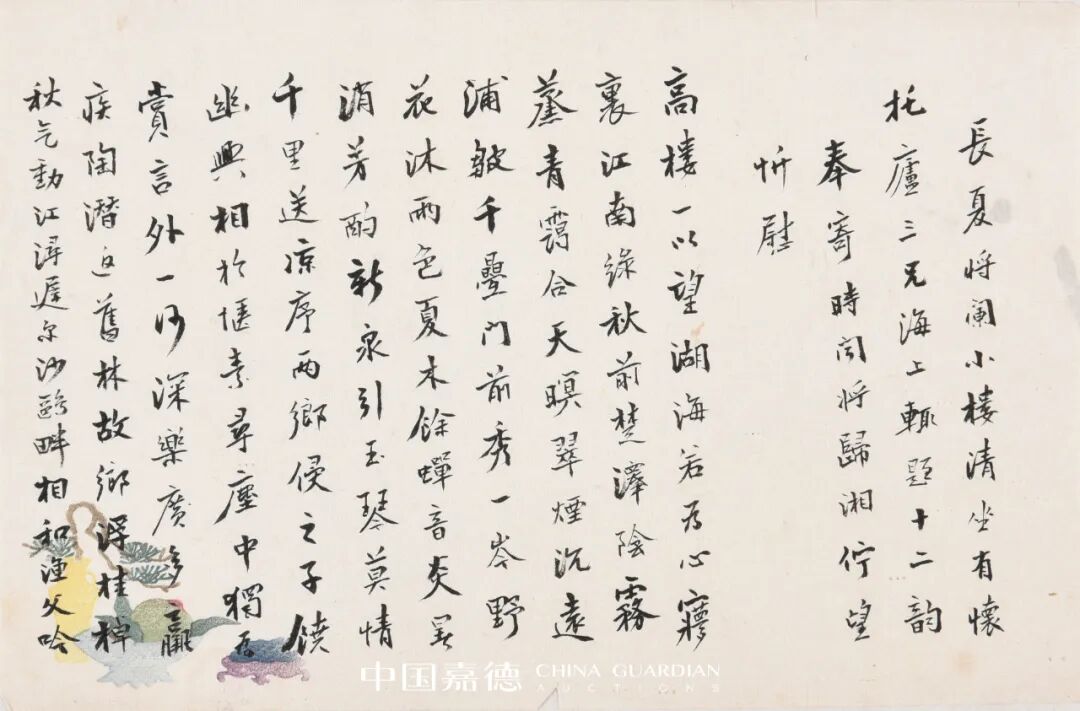 長夏将闌小楼清坐有懷
托廬三兄海上輒题十二韵
奉寄時闻将歸湘佇望
忻慰
高楼一以望湖海若为心㝱
裏江南绿秋前楚澤陰霧
蒸青靄合天暝翠煙沉遠
浦皴千疊门前秀一岑野
花沐雨色夏木餘蟬音炎景
消芳酌新泉引玉琴莫情
千里送凉序两鄉侵之子饒
幽興相於愜素尋塵中獨为
賞言外一何深樂廣多羸
疾陶潜返舊林故鄉浮桂棹
秋气動江潯遲尔沙鷗畔相和漁父吟
中国嘉德 CHINA GUARDIAN
AUCTIONS